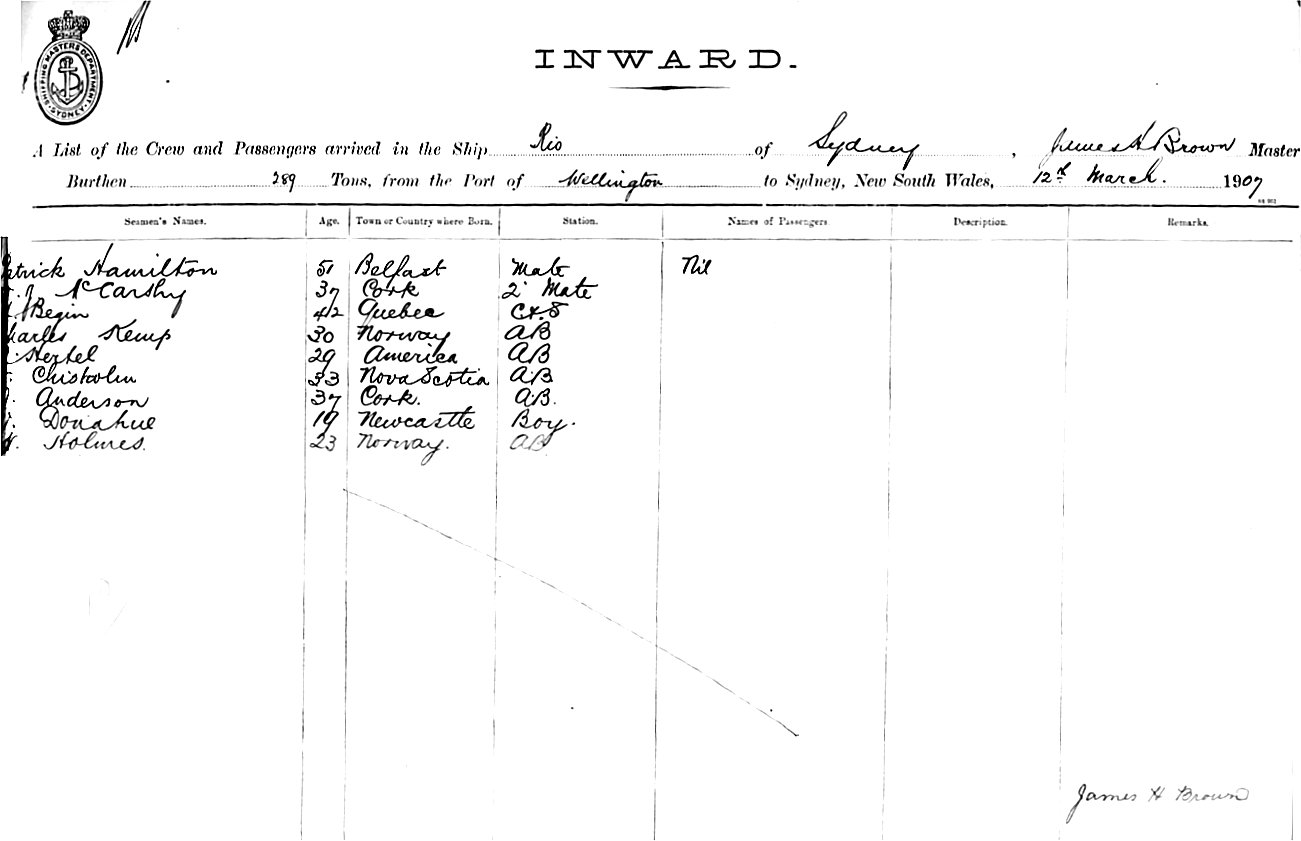 SHIPPING MASTERS DEPARTMENT SYDNEY
INWARD.
A List of the Crew and Passengers arrived in the Ship Rio of Sydney, James H Brown Master
Burthen 289 Tons, from the Port of Wellington to Sydney, New South Wales, 12th March. 1907
Seamen's Names. Age. Town or Country where Born. Station. Names of Passengers. Description. Remarks.
atrick Hamilton 51 Belfast Mate Nil
McCarthy 37 Cork 2 Mate
Begin 42 Quebec C&S
harles Kemp 30 Norway AB
29 America AB
Chisholm 33 Nova Scotia AB
Anderson 37 Cork. AB.
Donahue 19 Newcastle Boy.
Holmes. 23 Norway. AB
James H Brown